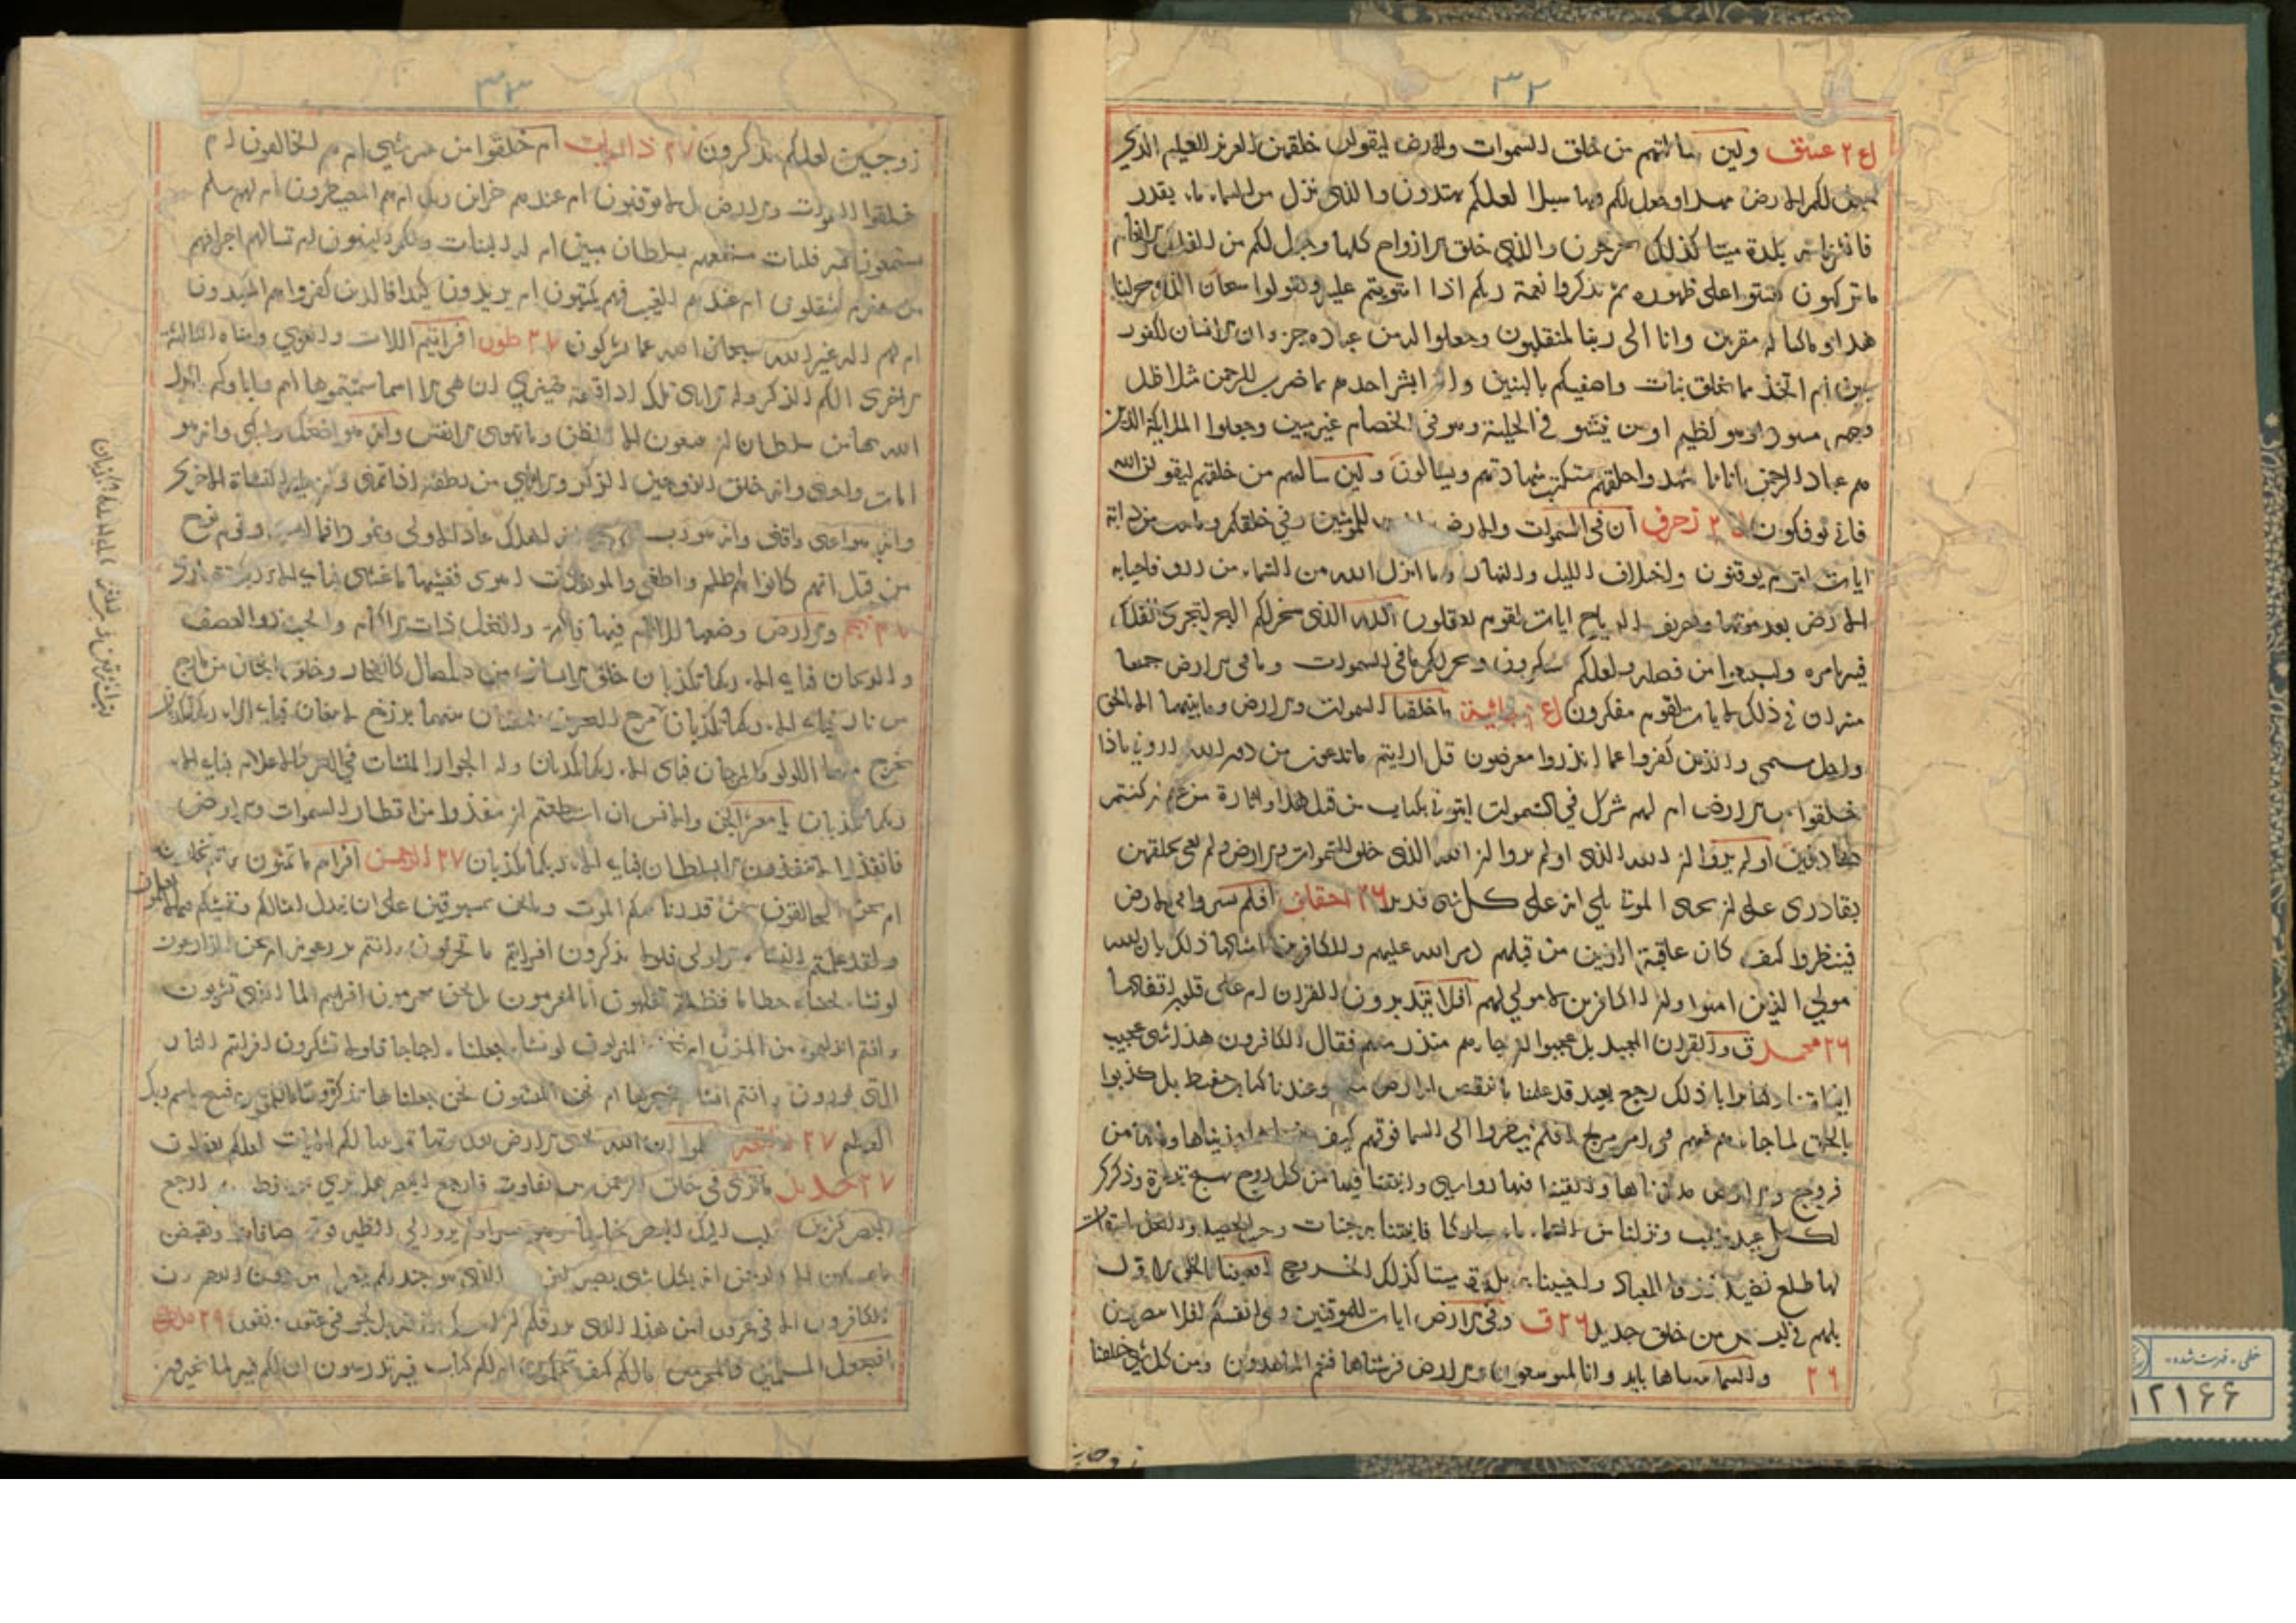 ٣٢
ولين سالتهم من خلق السموات والارض ليقولن خلقهن العزيز العليم الذي
لكم الارض مهدا وجعل لكم فيها سبلا لعلكم تهتدون والذي نزل من السماء ماء بقدر
بلدة ميتا كذلك تخرجون والذي خلق الازواج كلها وجعل لكم من الفلك والانعام
ما تركبون لتستوا على ظهوره ثم تذكروا نعمة ربكم اذا استويتم عليه وتقولوا سبحان الذي سخر لنا
هذا وما كنا له مقرنين وانا الى ربنا لمنقلبون وجعلوا له من عباده جزء ان الانسان لكفور
مبين ام اتخذ مما يخلق بنات واصفيكم بالبنين واذا ابشر احدهم بما ضرب للرحمن مثلا ظل
وجهه مسودا وهو كظيم او من ينشو في الحلية وهو في الخصام غير مبين وجعلوا الملايكة الذين
هم عباد الرحمن اناثا اشهدوا خلقهم ستكتب شهادتهم ويسالون ولين سالتهم من خلقهم ليقولن الله
فاني توفكون ٢٥ زخرف ان في السموات والارض للمومنين وفي خلقكم وما يبث من دابة
ايات لقوم يوقنون واختلاف الليل والنهار وما انزل الله من السماء من رزق فاحيا به
الارض بعد موتها وتصريف الرياح ايات لقوم يعقلون الله الذي سخر لكم البحر لتجري الفلك
فيه بامره ولتبتغوا من فضله ولعلكم تشكرون وسخر لكم ما في السموات وما في الارض جميعا
منه ان في ذلك لايات لقوم يتفكرون جاثية ما خلقنا السموات والارض وما بينهما الا بالحق
واجل مسمى والذين كفروا عما انذروا معرضون قل ارايتم ما تدعون من دون الله اروني ماذا
خلقوا من الارض ام لهم شرك في السموات ايتوني بكتاب من قبل هذا او اثارة من علم ان كنتم
صادقين اولم يروا ان الله الذي اولم يروا ان الله الذي خلق السموات والارض ولم يعي بخلقهن
بقادر على ان يحي الموتى بلي انه على كل شي قدير ٢٦ احقاف افلم يسيروا في الارض
فينظروا كيف كان عاقبة الذين من قبلهم دمر الله عليهم وللكافرين امثالها ذلك بان الله
مولي الذين امنوا وان الكافرين لا مولي لهم افلا يتدبرون القران ام على قلوب اقفالها
٢٦ محمد ق والقران المجيد بل عجبوا ان جاءهم منذر منهم فقال الكافرون هذا شي عجيب
ذلك رجع بعيد قد علمنا ما تنقص الارض منهم وعندنا كتاب حفيظ بل كذبوا
بالحق لما جاءهم فهم في امر مريج افلم ينظروا الى السما فوقهم كيف بنيناها وزيناها وما لها من
فروج والارض مددناها والقينا فيها رواسي وانبتنا فيها من كل زوج بهيج تبصرة وذكري
لكل عبد منيب ونزلنا من السماء ماء مباركا فانبتنا به جنات وحب الحصيد والنخل باسقات
لها طلع نضيد رزقا للعباد واحيينا به بلدة ميتا كذلك الخروج افعيينا بالخلق الاول
بل هم في لبس من خلق جديد ٢٦ ق وفي الارض ايات للموقنين وفي انفسكم افلا تبصرون
٢٦ والسماء بنيناها بايد وانا لموسعون والارض فرشناها فنعم الماهدون ومن كل شي خلقنا
زوجين
٣٣
زوجين لعلكم تذكرون ٢٧ ذاريات ام خلقوا من غير شي ام هم الخالقون ام
خلقوا السموات والارض بل لا يوقنون ام عندهم خزاين ربك ام هم المصيطرون ام لهم سلم
يستمعون فيه فليات مستمعهم بسلطان مبين ام له البنات ولكم البنون ام تسالهم اجرا فهم
من مغرم مثقلون ام عندهم الغيب فهم يكتبون ام يريدون كيدا فالذين كفروا هم المكيدون
ام لهم اله غير الله سبحان الله عما يشركون ٢٧ طور افرايتم اللات والعزي ومناة الثالثة
الاخرى الكم الذكر وله الانثى تلك اذا قسمة ضيزي ان هي الا اسما سميتموها انتم واباوكم ما انزل
الله بها من سلطان ان يتبعون الا الظن وما تهوى الانفس وانه هو اضحك وابكي وانه هو
امات واحيى وانه خلق الزوجين الذكر والانثي من نطفة اذا تمنى وان عليه النشاة الاخرى
وانه هو اغنى واقنى وانه هو رب اهلك عاد الاولى وثمود فما ابقى وقوم نوح
من قبل انهم كانوا هم اظلم واطغى والموتفكة اهوى فغشيها ما غشى فباي الاء ربك تتمارى
٢٧ نجم والارض وضعها للانام فيها فاكهة والنخل ذات الاكمام والحب ذو العصف
والريحان فباي الاء ربكما تكذبان خلق الانسان من صلصال كالفخار وخلق الجان من مارج
من نار فباي الاء ربكما تكذبان مرج البحرين يلتقيان بينهما برزخ لا يبغيان فباي الاء ربكما تكذبان
يخرج منهما اللولو والمرجان فباي الاء ربكما تكذبان وله الجوار المنشات في البحر كالاعلام فباي الاء
ربكما تكذبان يا معشر الجن والانس ان استطعتم ان تنفذوا من اقطار السموات والارض
فانفذوا لا تنفذون الا بسلطان فباي الاء ربكما تكذبان ٢٧ الرحمن افرايتم ما تمنون ءانتم تخلقونه
ام نحن الخالقون نحن قدرنا بينكم الموت وما نحن بمسبوقين على ان نبدل امثالكم وننشيكم فيما لا تعلمون
ولقد علمتم النشاة الاولى فلولا تذكرون افرايتم ما تحرثون ءانتم تزرعونه ام نحن الزارعون
لو نشاء لجعلناه حطاما فظلتم تفكهون انا لمغرمون بل نحن محرومون افرايتم الما الذي تشربون
ءانتم انزلتموه من المزن ام نحن المنزلون لو نشاء جعلناه اجاجا فلولا تشكرون افرايتم النار
التي تورون ءانتم انشاتم شجرتها ام نحن المنشون نحن جعلناها تذكرة ومتاعا للمقوين فسبح باسم ربك
العظيم ٢٧ واقعة اعلموا ان الله يحي الارض بعد موتها قد بينا لكم الايات لعلكم تعقلون
٢٧ حديد ما ترى في خلق الرحمن من تفاوت فارجع البصر هل ترى من فطور ثم ارجع
البصر كرتين ينقلب اليك البصر خاسيا وهو حسير اولم يروا الي الطير فوقهم صافات ويقبضن
ما يمسكهن الا الرحمن انه بكل شي بصير امن الذي هو جند لكم ينصركم من دون الرحمن ان
الكافرون الا في غرور امن هذا الذي يرزقكم ان امسك رزقه بل لجوا في عتو ونفور ٢٩ ملك
افنجعل المسلمين كالمجرمين مالكم كيف تحكمون ام لكم كتاب فيه تدرسون ان لكم فيه لما تخيرون
١٢١۶۶